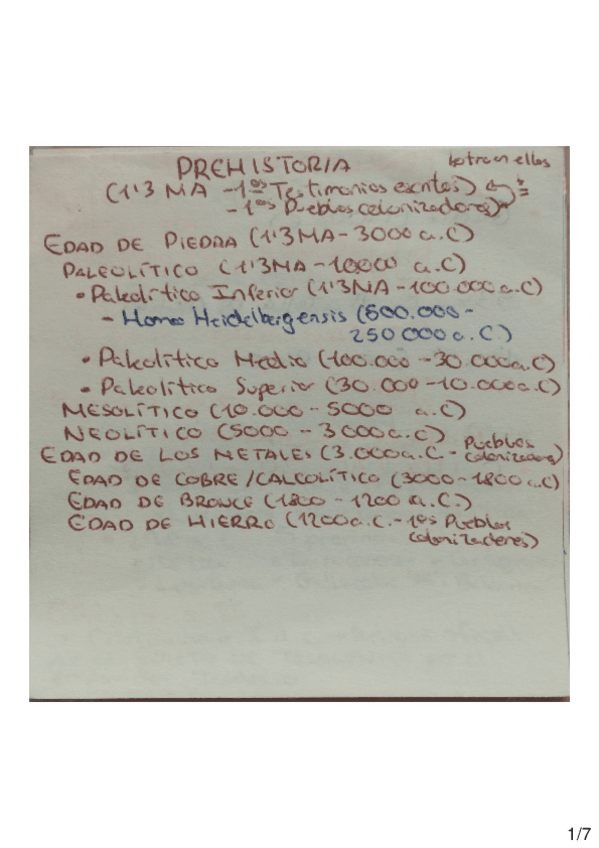 PREHISTORIA
(1'3 MA - 1os Testimonios escritos)
- 1os Pueblos colonizadores)
EDAD DE PIEDRA (1'3 MA - 3000 a.C)
PALEOLÍTICO (1'3 MA - 10000 a.C)
• Paleolítico Inferior (1'3 MA - 100.000 a.C)
- Homo Heidelbergensis (600.000 -
250 000 a.C.)
• Paleolítico Medio (100.000 - 30.000 a.C)
• Paleolítico Superior (30.000 - 10.000 a.C)
MESOLÍTICO (10.000 - 5000 a.C)
NEOLÍTICO (5000 - 3000 a.C)
EDAD DE LOS METALES (3.000 a.C - Pueblos
colonizadores)
EDAD DE COBRE / CALCOLÍTICO (3000 - 1800 a.C)
EDAD DE BRONCE (1800 - 1200 a.C.)
EDAD DE HIERRO (1200 a.C. - 1os Pueblos
colonizadores)
1/7